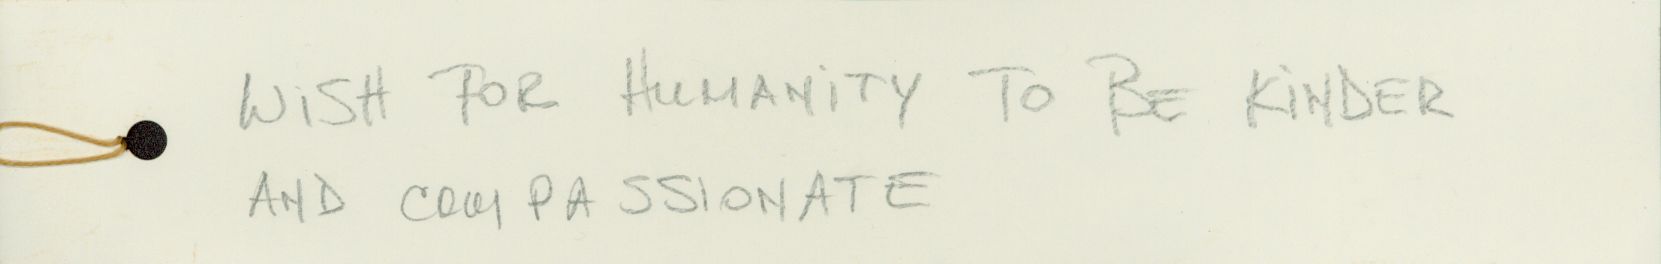 WiSH FOR HUMANiTY TO BE KiNDER
AND COMPASSIONATE